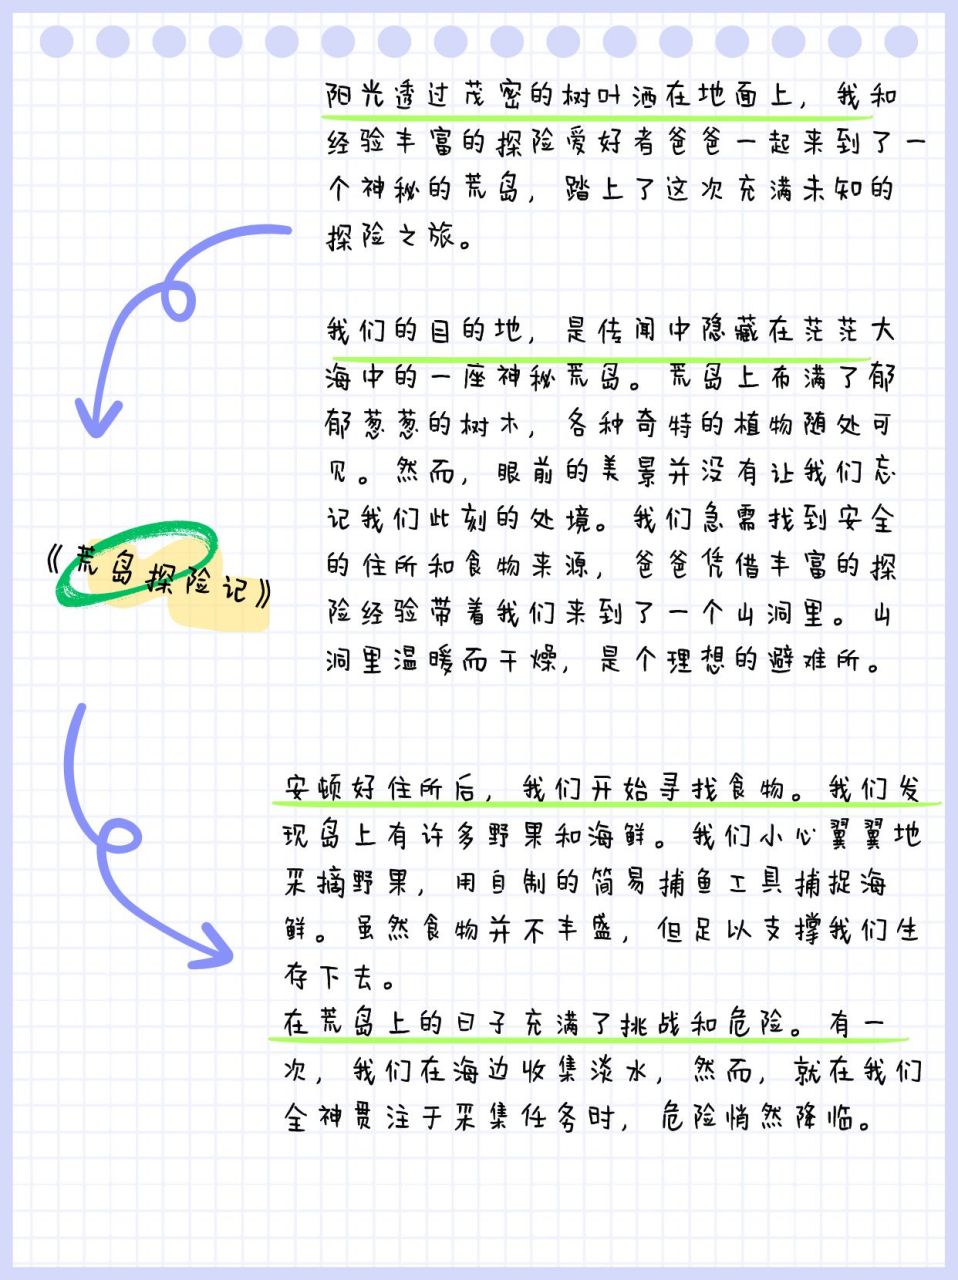 阳光透过茂密的树叶洒在地面上，我和
经验丰富的探险爱好者爸爸一起来到了一
个神秘的荒岛，踏上了这次充满未知的
探险之旅。
我们的目的地，是传闻中隐藏在茫茫大
海中的一座神秘荒岛。荒岛上布满了郁
郁葱葱的树木，各种奇特的植物随处可
见。然而，眼前的美景并没有让我们忘
记我们此刻的处境。我们急需找到安全
的住所和食物来源，爸爸凭借丰富的探
险经验带着我们来到了一个山洞里。山
洞里温暖而干燥，是个理想的避难所。
《荒岛探险记》
安顿好住所后，我们开始寻找食物。我们发
现岛上有许多野果和海鲜。我们小心翼翼地
采摘野果，用自制的简易捕鱼工具捕捉海
鲜。虽然食物并不丰盛，但足以支撑我们生
存下去。
在荒岛上的日子充满了挑战和危险。有一
次，我们在海边收集淡水，然而，就在我们
全神贯注于采集任务时，危险悄然降临。